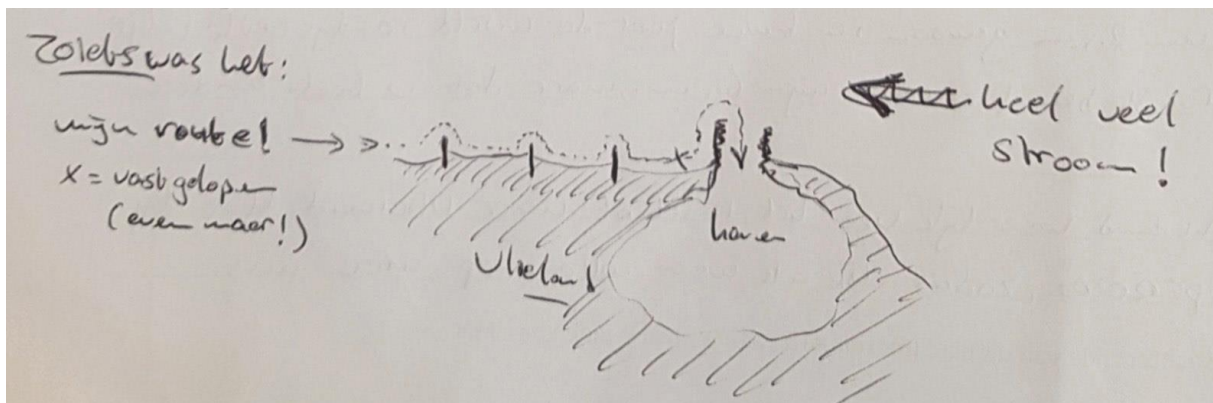 Zoiets was het:
mijn route!
x = vastgelopen
(even maar!)
heel veel
stroom!
haven
Vlieland